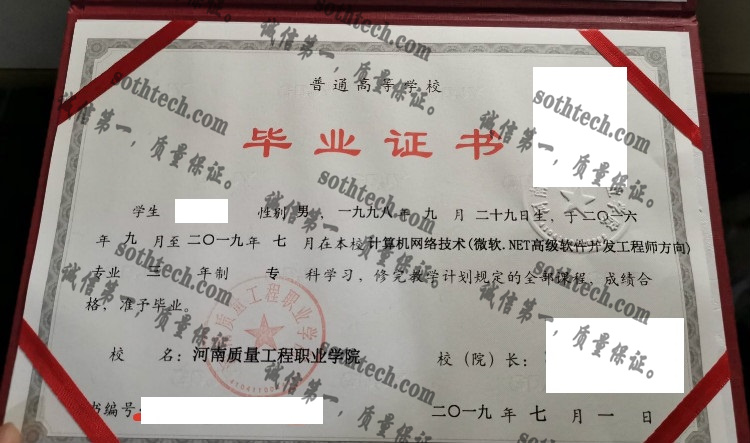 普通高等学校
毕业证书
学生 性别 男，一九九八年 九 月 二十九日生，于二〇一六
年 九 月至 二〇一九年 七 月在本校 计算机网络技术(微软.NET高级软件开发工程师方向)
专业 三 年制 专 科学习，修完教学计划规定的全部课程，成绩合
格，准予毕业。
校 名：河南质量工程职业学院
校（院）长：
书编号
二〇一九 年 七 月 一 日
质量工程职业学
诚信第一，质量保证。
sothtech.com
诚信第一，质量保证。
sothtech.com
诚信第一，质量保证。
sothtech.com
诚信第一，质量保证。
sothtech.com
诚信第一，质量保证。
sothtech.com
诚信第一，质量保证。
sothtech.com
诚信第一，质量保证。
sothtech.com
诚信第一，质量保证。
sothtech.com
诚信第一，质量保证。